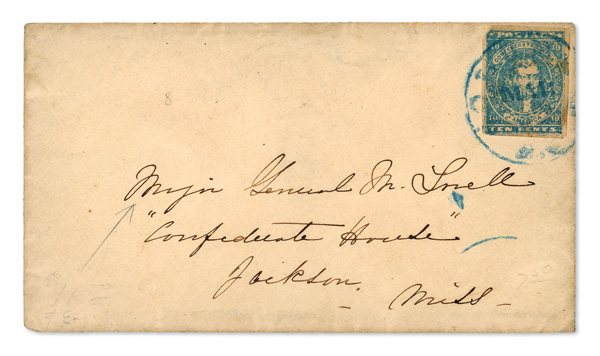 POSTAGE
10 10
10 10
TEN CENTS
8
Major General M. Lovell
"Confederate House"
Jackson.
Miss -